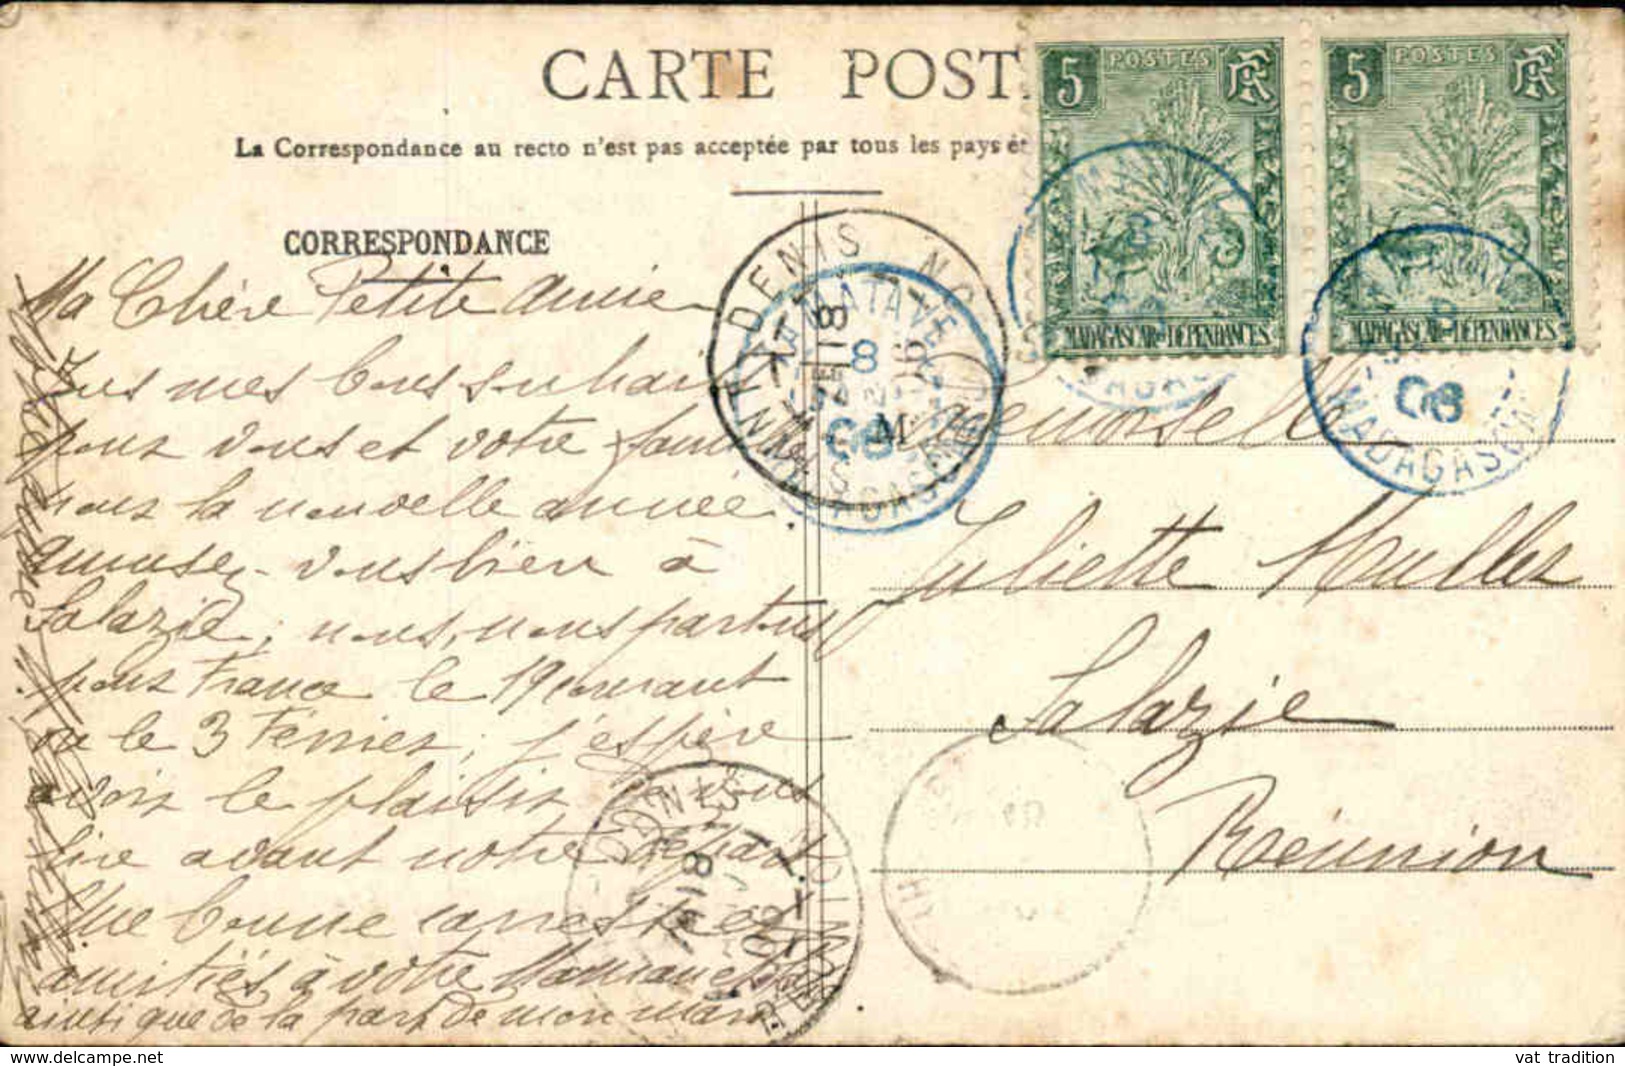 CARTE POST
La Correspondance au recto n'est pas acceptée par tous les pays ét
CORRESPONDANCE
5 POSTES RF
MADAGASCAR ET DÉPENDANCES
5 POSTES RF
MADAGASCAR ET DÉPENDANCES
Ma Chère Petite Amie
Tous mes bons souhaits
pour vous et votre famille
pour la nouvelle année.
amusez-vous bien à
Salazie; nous, nous partons
pour France le 19 courant
ou le 3 Février; j'espère
avoir le plaisir de vous
lire avant notre départ
Une bonne caresse et
amitiés à votre Maman et
ainsi que de la part de mon mari
Votre amie
M
Juliette Muller
Salazie
Réunion
ST DENIS
TAMATAVE
8
06
MADAGASCAR
8
06
MADAGASCAR
RÉUNION
vat tradition
www.delcampe.net